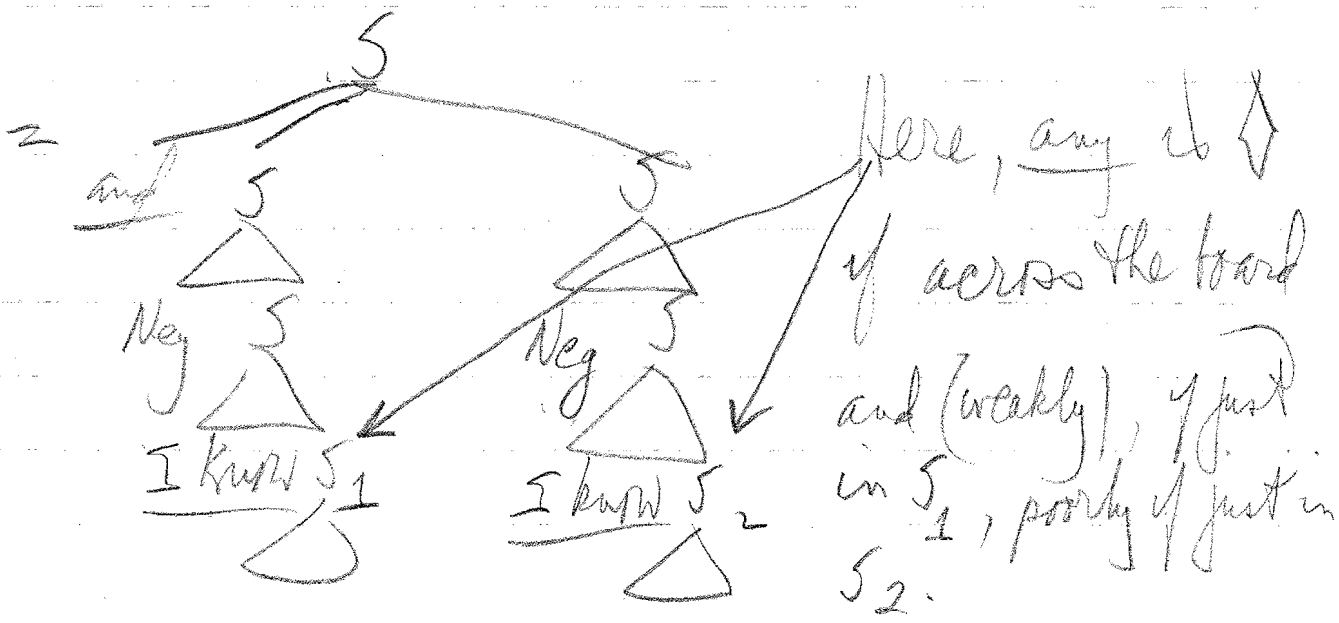 S
=
and S S
Neg S Neg S
I know S1 I know S2
Here, any is ◊
if across the board
and (weakly), if just
in S1, poorly if just in
S2.